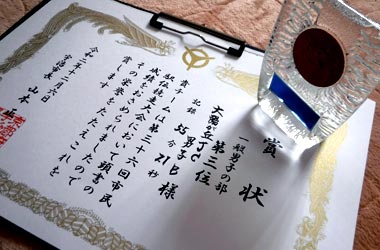 賞状
一般男子の部
第三位
男子B様
記録 55分21秒
貴チームは第三十六回市民
駅伝競走大会において頭書の
成績をおさめられましたので
その栄誉をたたえこれを
賞します
令和二年十二月六日
宇治市長 山本 正